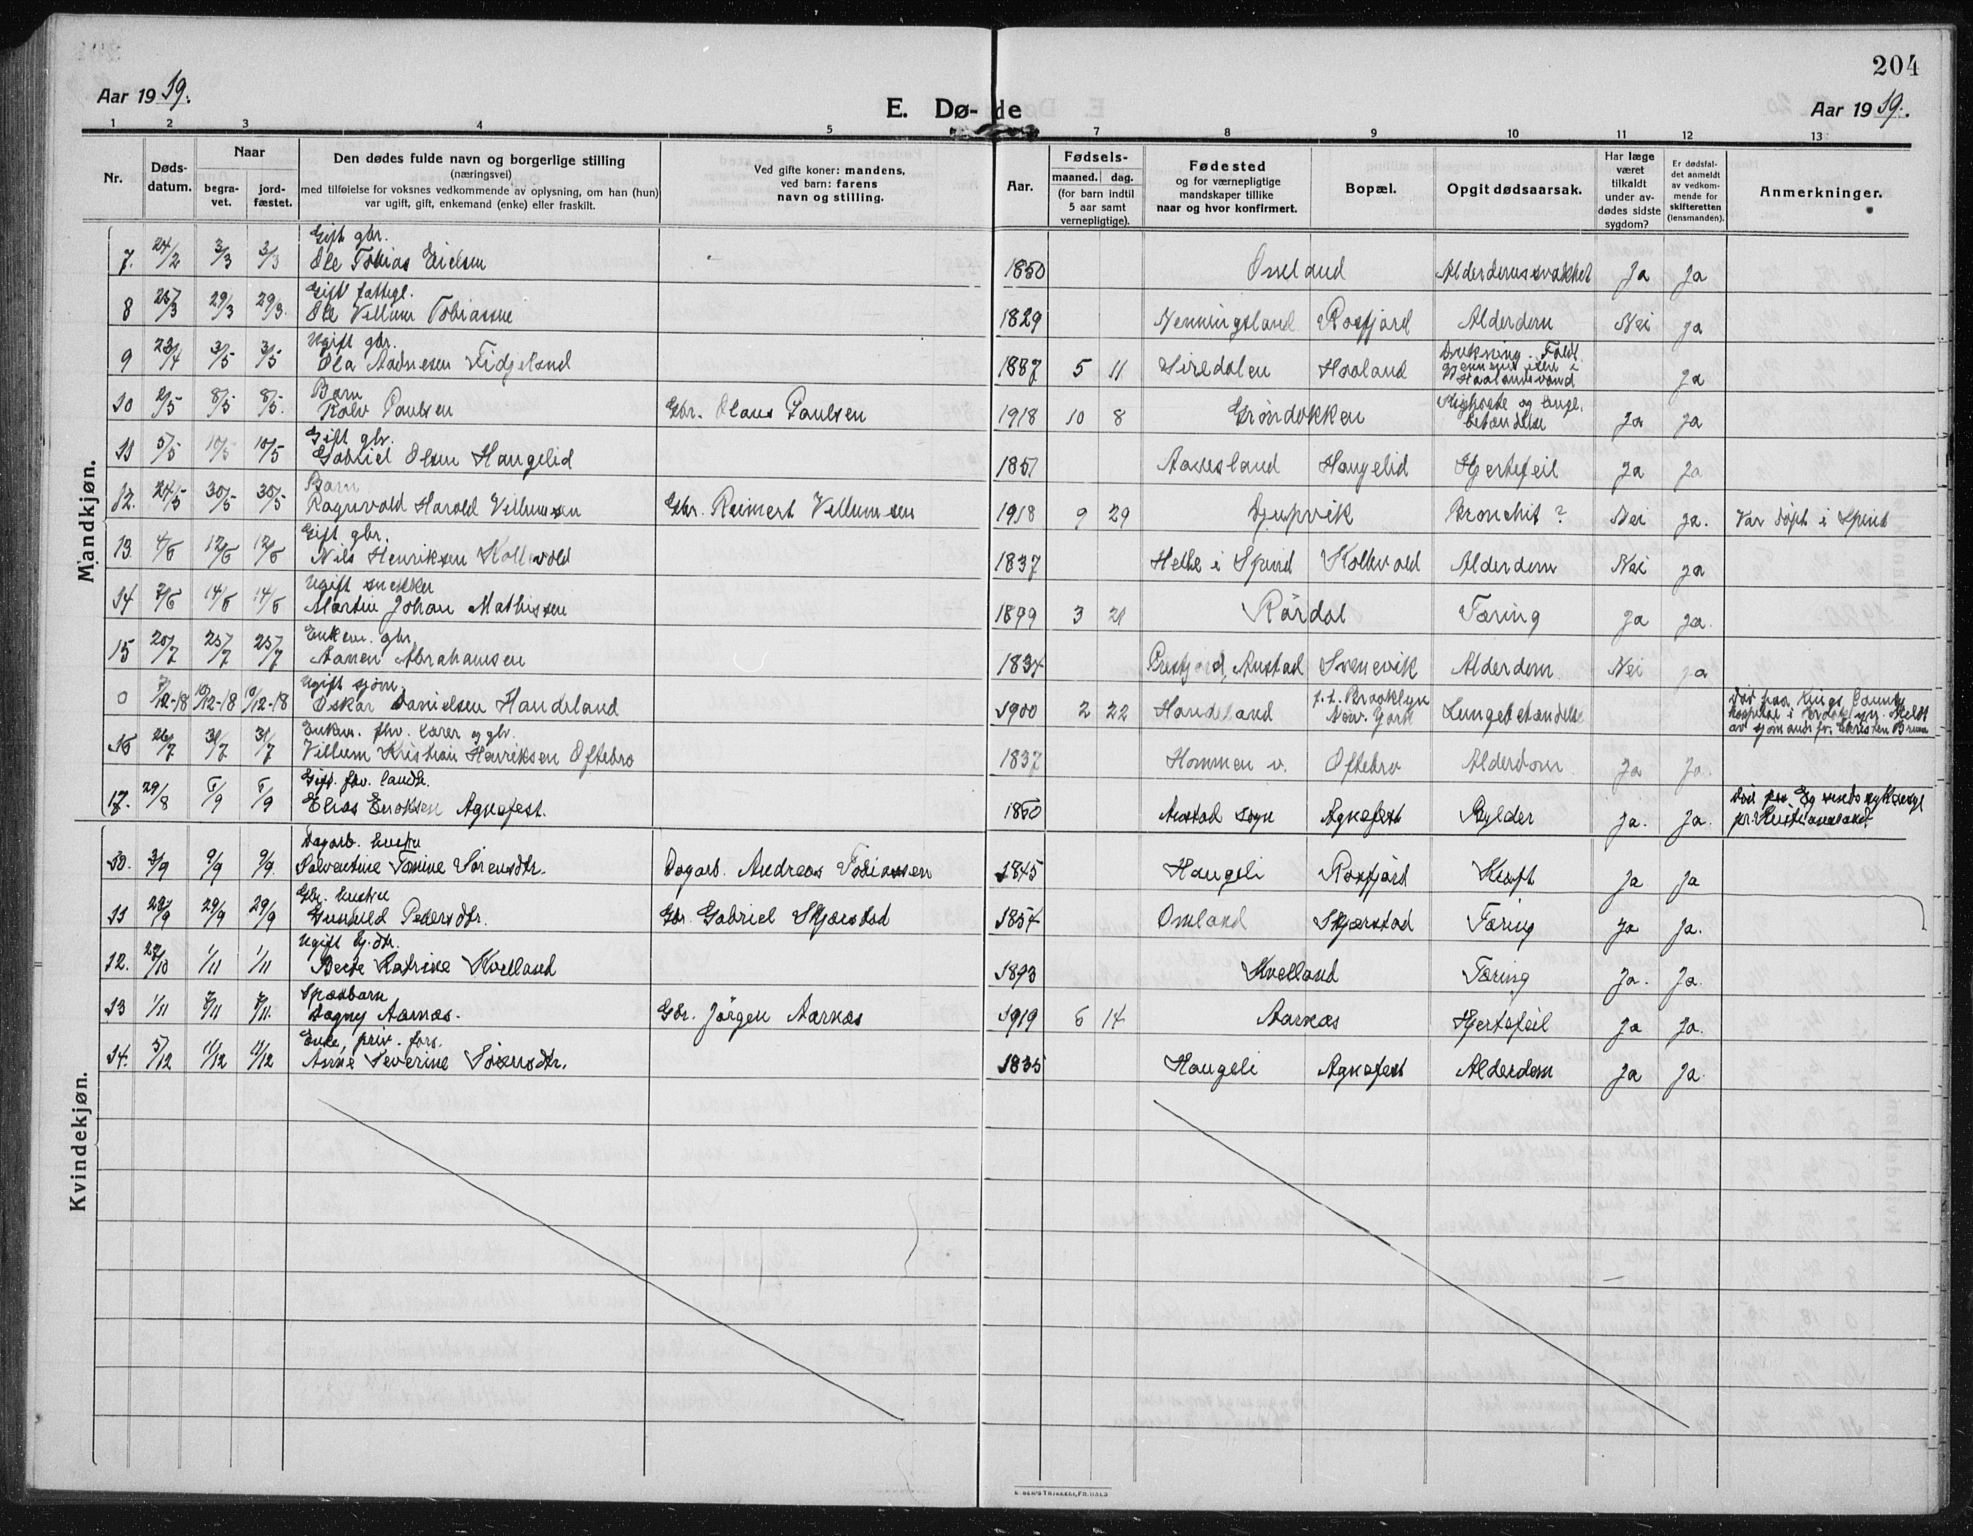 204
Aar 1919.
E. Dø- de
Aar 1919.
1 2 3 4 5 7 8 9 10 11 12 13
Nr.
Døds-
datum.
Naar
begra-
vet.
jord-
fæstet.
Den dødes fulde navn og borgerlige stilling
(næringsvei)
med tilføielse for voksnes vedkommende av oplysning, om han (hun)
var ugift, gift, enkemand (enke) eller fraskilt.
Ved gifte koner: mandens,
ved barn: farens
navn og stilling.
Aar.
Fødsels-
maaned. dag.
(for barn indtil
5 aar samt
vernepligtige).
Fødested
og for værnepligtige
mandskaper tillike
naar og hvor konfirmert.
Bopæl.
Opgit dødsaarsak.
Har læge
været
tilkaldt
under av-
dødes sidste
sygdom?
Er dødsfal-
det anmeldt
av vedkom-
mende for
skifteretten
(lensmanden).
Anmerkninger.
Mandkjøn.
Gift gbr.
7. 24/2 3/3 3/3 Ole Tobias Eielsen 1850 Omland Alderdomssvakhet Ja Ja
Gift fattigl.
8 /3 29/3 29/3. Ole Villum Tobiassen 1829 Nenningsland Rosfjord Alderdom Nei ja
Ugift gbr.
9 23/4 3/5 3/5 Ola Aadnesen Fidjeland 1887 5 11 Siredalen Haaland Drukning. Faldt
Haalandsvand ja
Barn
10 2/5 8/5 8/5. Rolv Paulsen Gbr. Olaus Paulsen 1918 10 8 Grøndokken Kighoste og lunge-
betændelse Ja Ja
Gift gbr.
11 5/5 10/5 10/5 Gabriel Olsen Haugelid 1851 Aanesland Haugelid Hjertefeil Ja Ja
Barn
12. 24/5 30/5 30/5 Ragnvald Harald Villumsen Gbr. Reimert Villumsen 1918 9 29 Djupvik Bronchit? Nei ja. Var døpt i Spind
Gift gbr.
13 4/6 12/6 12/6 Nils Henriksen Kollevold 1837 Helle i Spind Kollevold Alderdom Nei ja
Ugift snekker
14 7/6 14/6 14/6 Martin Johan Mathissen 1899 3 21 Rördal Tæring Ja Ja.
Enkem. gbr.
15 20/7 25/7 25/7 Aanen Abrahamsen 1834 Austad Svenevik Alderdom Nei ja
Ugift sjøm.
0 7/12-18 10/12-18 10/12-18 Oskar Danielsen Handeland 1900 2 22 Handeland p.t. Brooklyn
New. York Lungebetændelse Død paa Kings County
hospital i Brooklyn. Meldt
av sjømandspr. Christen Bruun
Enkem. fhv. lærer og gbr.
16 26/7 31/7 31/7 Villum Kristian Henriksen Oftebro 1837 Hommen v. Oftebro Alderdom Ja Ja.
Gift. fhv. landh.
17. 29/8 6/9 6/9 Elias Eriksen Agnefest. 1850 Austad sogn Agnefest Bylder Ja. Ja. Død paa Eg sindssykeasyl
pr. Kristianssand.
Kvindekjøn.
Dagarb. hustru
10. 3/9 9/9 9/9. Salventine Tomine Sörensdtr. Dagarb. Andreas Tobiassen 1845 Haugeli Rosfjord Kræft Ja Ja
Gbr. hustru
11 23/9 29/9 29/9 Gunhild Pedersdtr. Gbr. Gabriel Skjærstad 1857 Omland Skjærstad Tæring Ja Ja.
Ugift gb.dtr.
12. 27/10 1/11 1/11 Berte Katrine Kvelland 1893 Kvelland Tæring Ja. Ja.
Spædbarn
13 1/11 7/11 7/11. Dagny Aarnæs. Gbr. Jörgen Aarnæs 1919 6 14 Aarnæs Hjertefeil Ja Ja.
Enke, priv. fors.
14. 5/12 11/12 11/12 Anne Severine Sörensdtr. 1835 Haugeli Agnefest Alderdom Ja Ja.